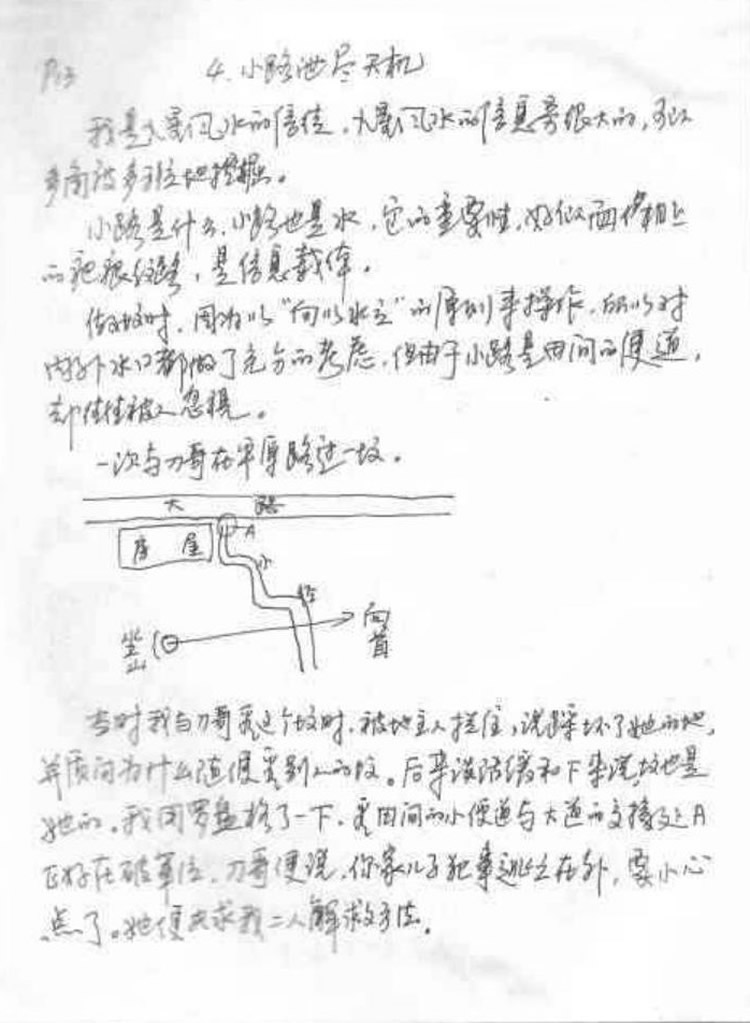 P13
4. 小路泄尽天机
我是大量风水的信徒，大量风水的信息量很大的，可以
多角度多班位地挖掘。
小路是什么，小路也是水，它的重要性，好似面像相上
的疤痕纹路，是信息载体。
做坟时，因为以“向以水立”的原则来操作，所以对
内外水口都做了充分的考虑，但由于小路是田间的便道，
却往往被人忽视。
一次与刀哥在平原路过一坟。
大 路
A
房 屋
小
径
坐山
向首
当时我与刀哥看这个坟时，被地主人拦住，说踩坏了她的地，
并质问为什么随便看别人的坟。后来谈话缓和下来说坟也是
她的。我用罗盘格了一下，看田间的小便道与大道的交接处A
正好在破军位，刀哥便说，你家儿子犯事逃亡在外，要小心
点了。她便求我二人解救方法。